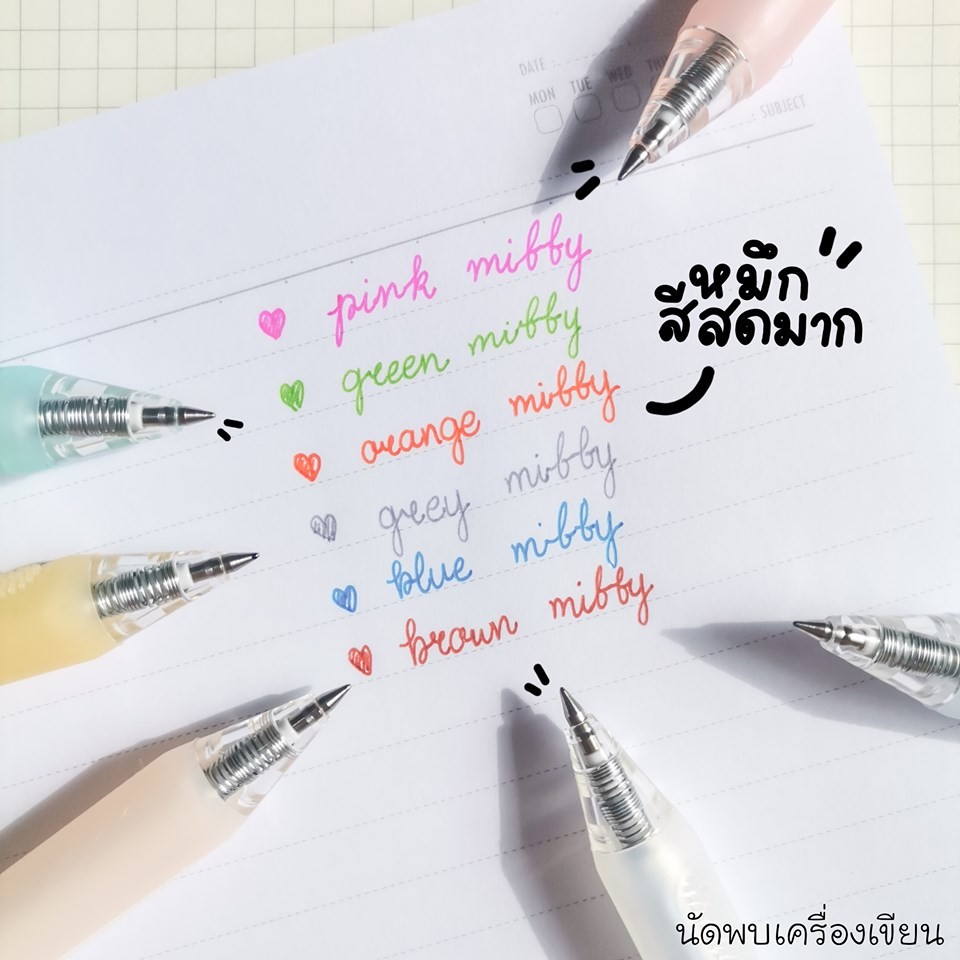 DATE :
MON TUE WED TH
: SUBJECT
pink mibby
green mibby
orange mibby
grey mibby
blue mibby
brown mibby
หมึก
สีสดมาก
นัดพบเครื่องเขียน